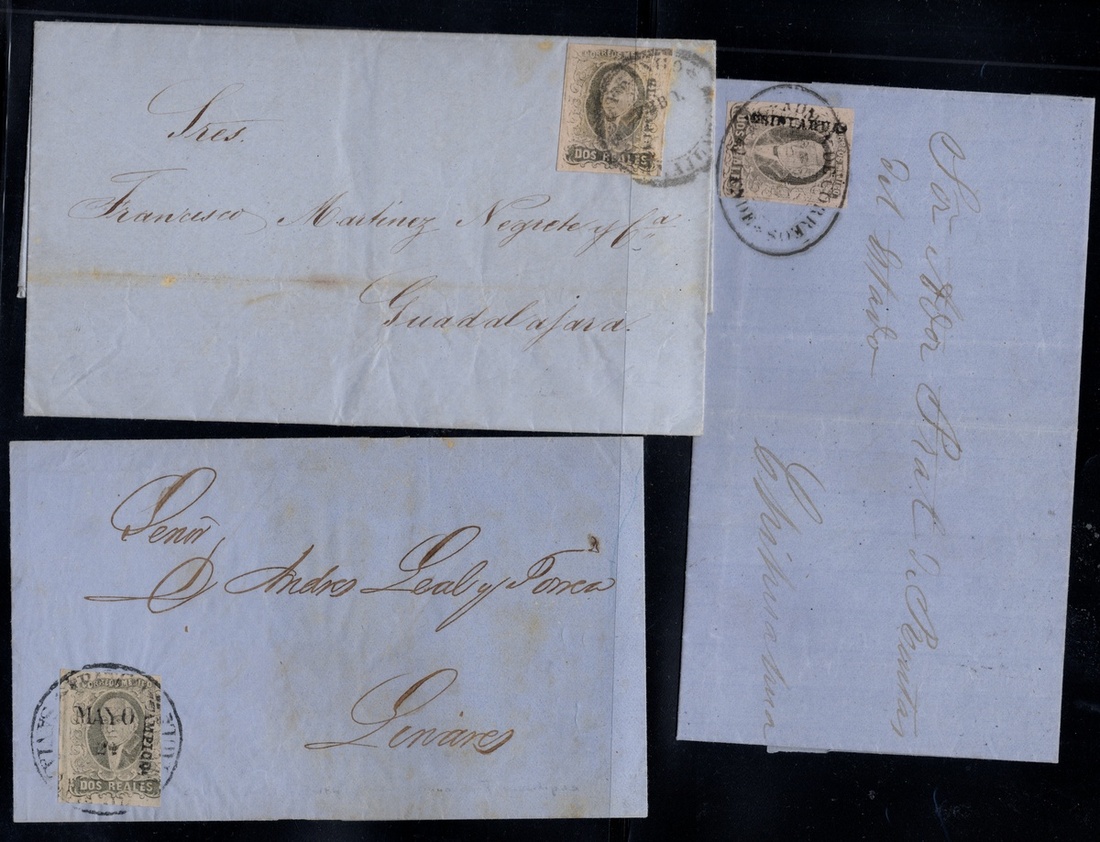 Sres.
Francisco Martinez Negrete y Cᵃ
Guadalajara.
DOS REALES
Señor
D Andres Leal y Torrea
Linares
MAYO
TAMPICO
FRANCO
DOS REALES
Sor Ador Pral de Rentas
del Estado
Chihuahua
CHIHUAHUA
CORREOS